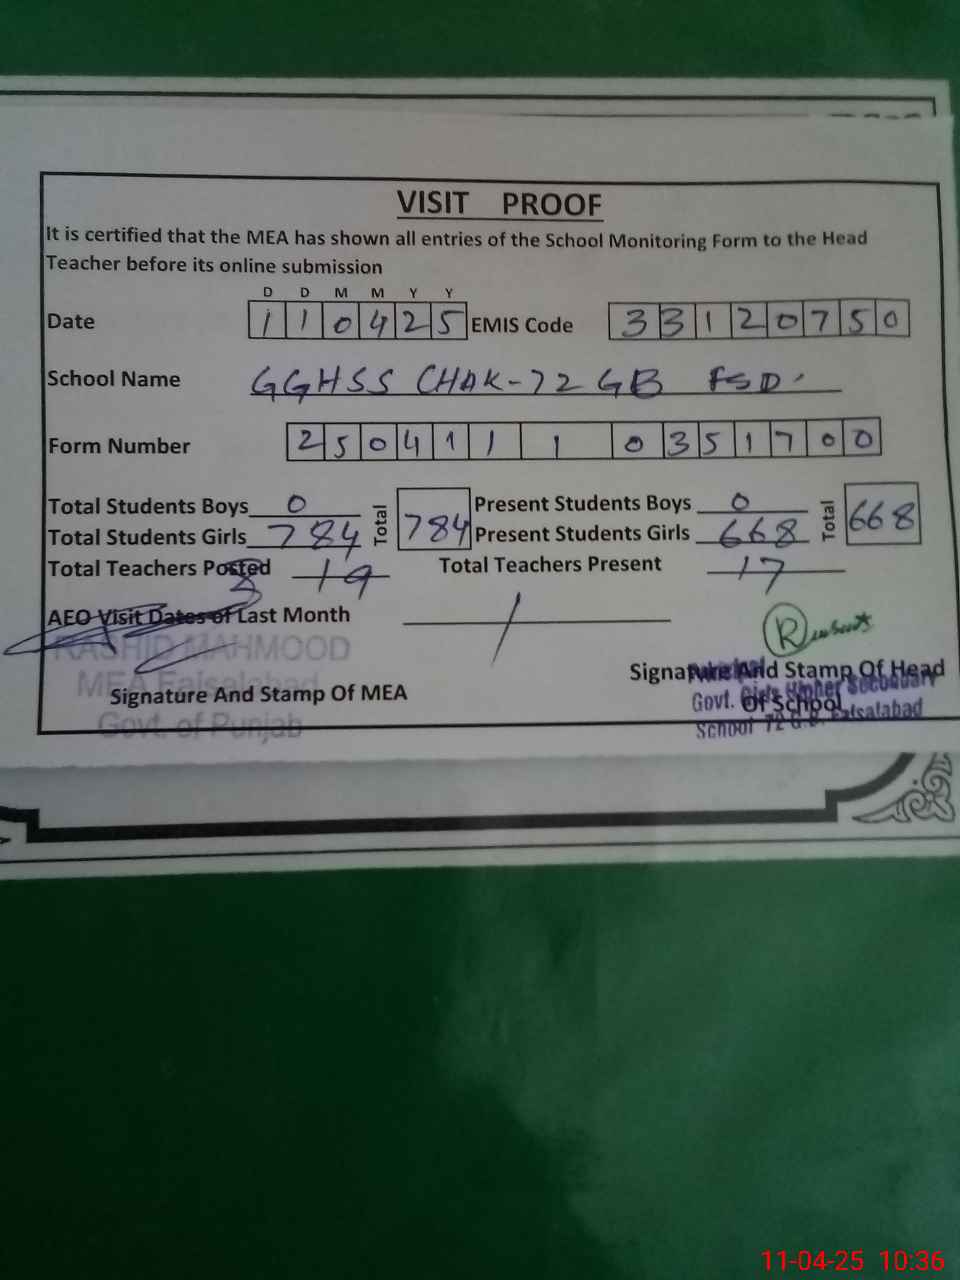 VISIT PROOF
It is certified that the MEA has shown all entries of the School Monitoring Form to the Head
Teacher before its online submission
D D M M Y Y
Date 1 1 0 4 2 5 EMIS Code 3 3 1 2 0 7 5 0
School Name GGHSS CHAK-72 GB FSD.
Form Number 2 5 0 4 1 1 1 0 3 5 1 7 0 0
Total Students Boys 0 Total 784 Present Students Boys 0 Total 668
Total Students Girls 784 Present Students Girls 668
Total Teachers Posted 19 Total Teachers Present 17
AEO Visit Dates of Last Month /
RASHID MAHMOOD
MEA Faisalabad
Govt. of Punjab
Signature And Stamp Of MEA
Signature And Stamp Of Head
Of School
Govt. Girls Higher Secondary
School 72 G.B. Faisalabad
11-04-25 10:36